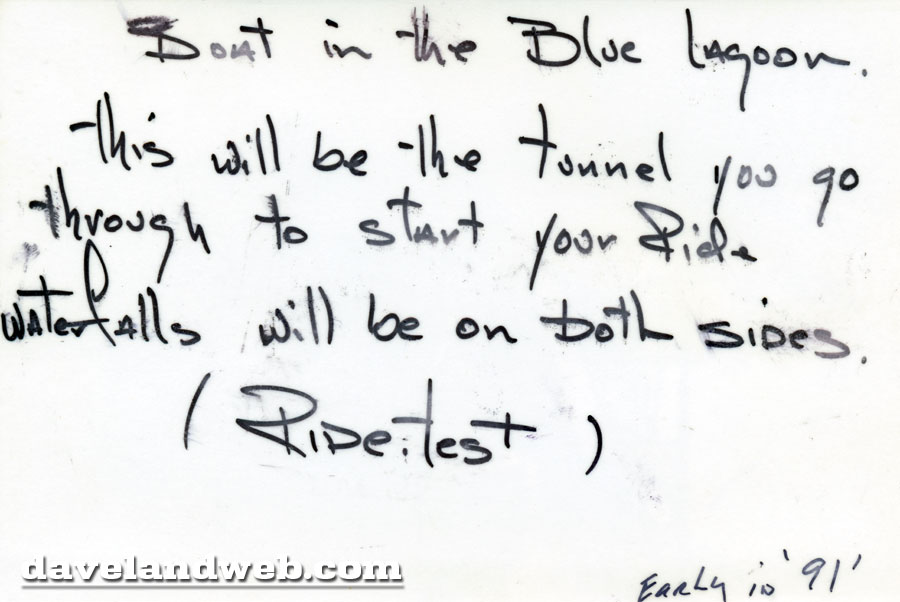 Boat in the Blue Lagoon.
this will be the tunnel you go
through to start your Ride
waterfalls will be on both sides.
( Ride. test )
davelandweb.com
Early in '91'